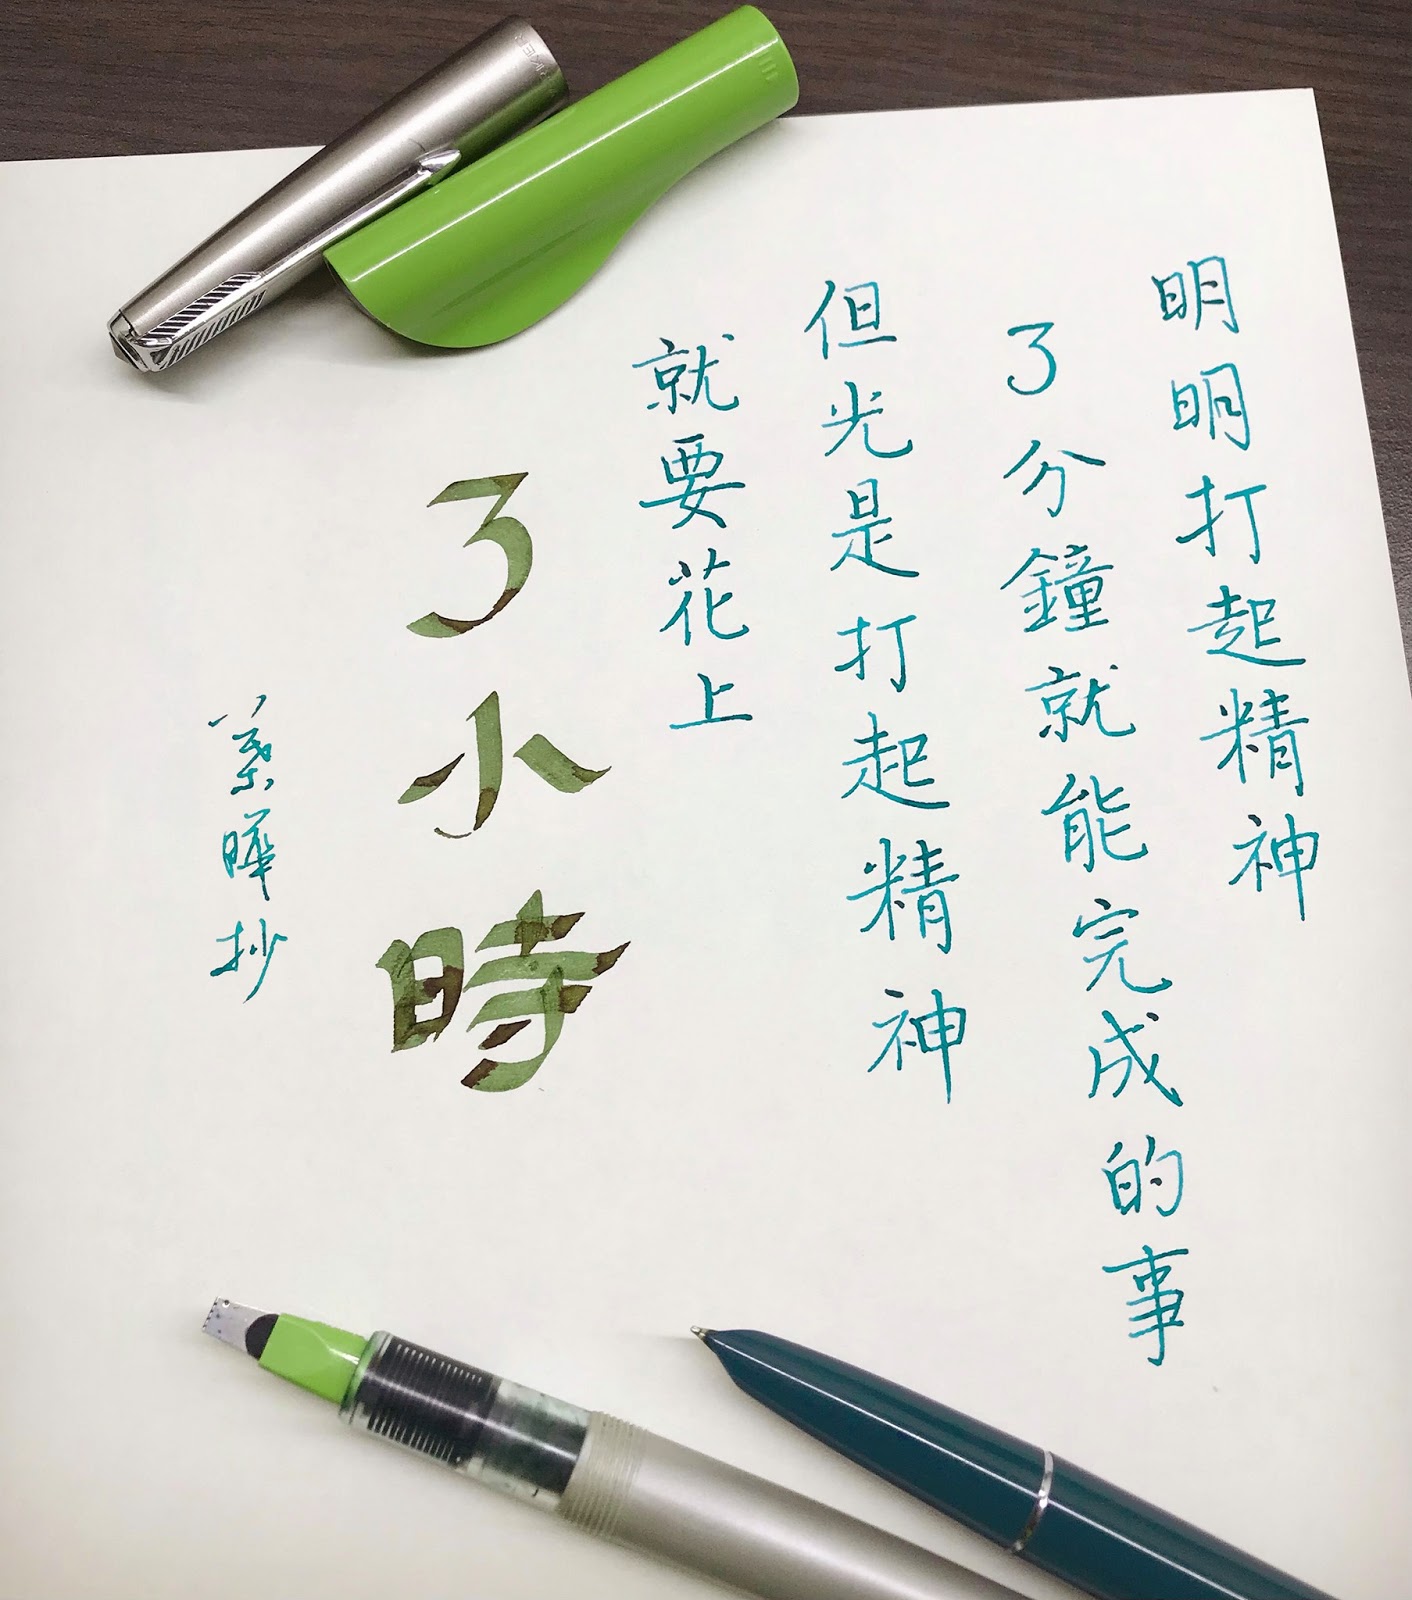 明明打起精神
3分鐘就能完成的事
但光是打起精神
就要花上
3小時
葉曄抄